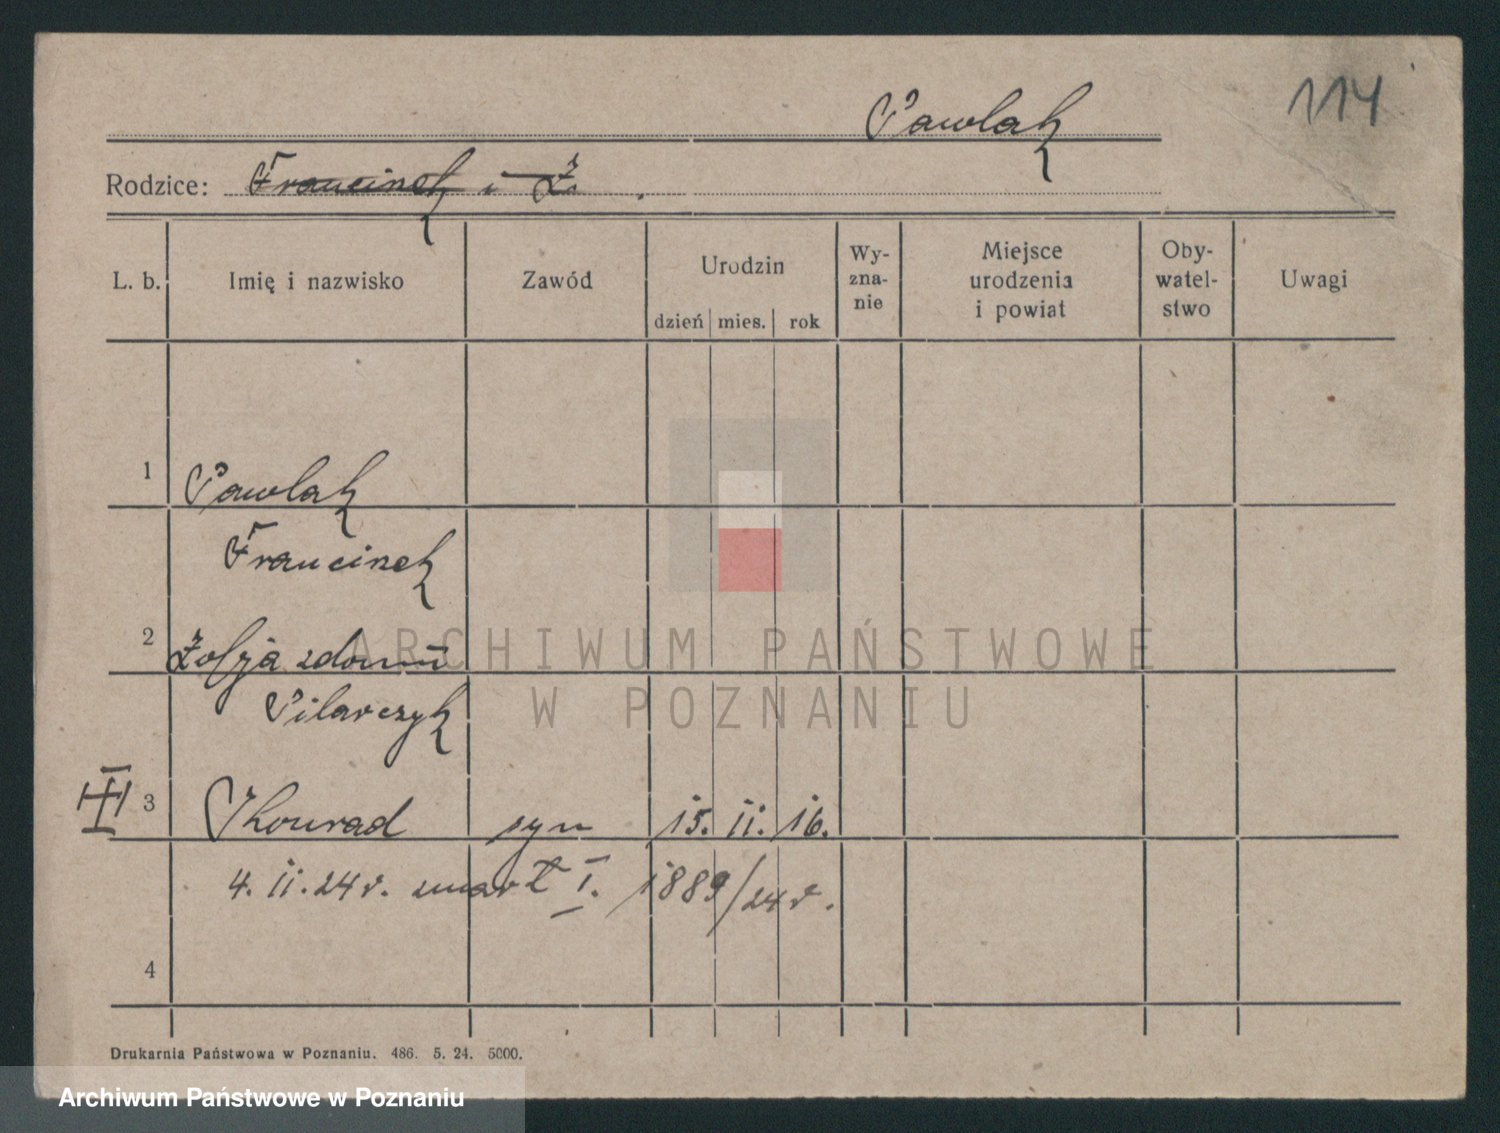 114
Pawlak
Rodzice: Franciszek i Z.
L. b. Imię i nazwisko Zawód Urodzin Wy-zna-nie Miejsce urodzenia i powiat Oby-watel-stwo Uwagi
dzień mies. rok
1 Pawlak
Franciszek
2 Zofja zdomu
Pilarczyk
3 Konrad syn 15. II. 16.
4. II. 24 r. zmarł I. 1889/24 r.
4
ARCHIWUM PAŃSTWOWE
W POZNANIU
Drukarnia Państwowa w Poznaniu. 486. 5. 24. 5000.
Archiwum Państwowe w Poznaniu